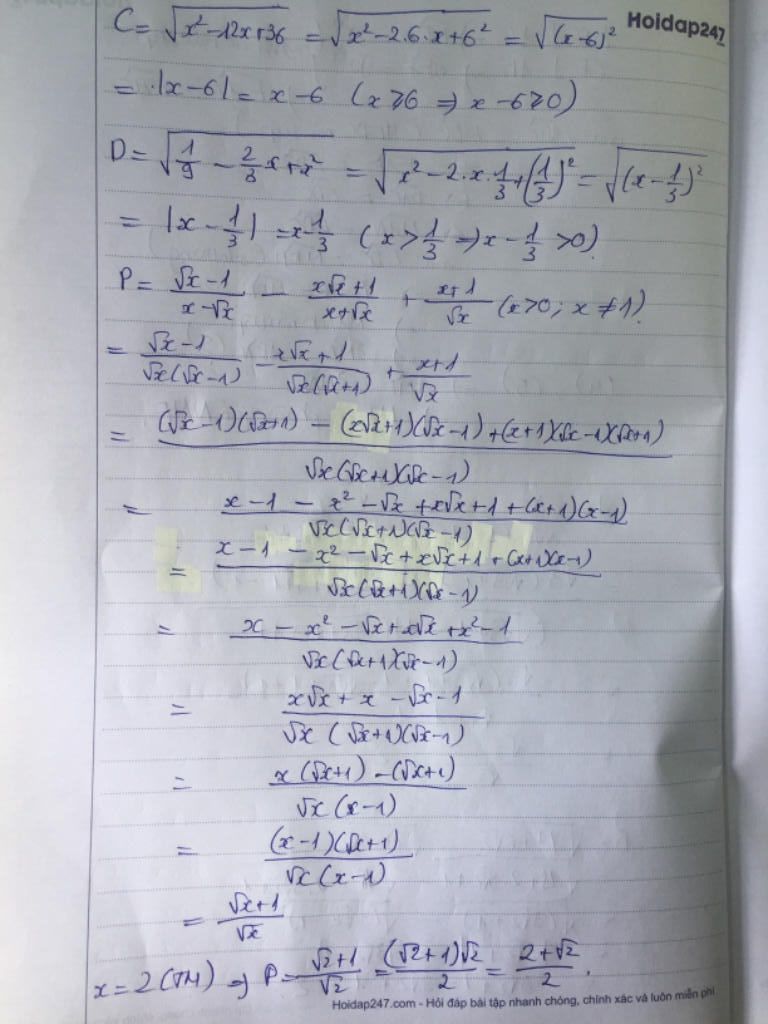 C = √(x² - 12x + 36) = √(x² - 2.6.x + 6²) = √((x - 6)²) Hoidap247
= |x - 6| = x - 6 (x ⩾ 6 ⇒ x - 6 ⩾ 0)
D = √(1/9 - 2/3 x + x²) = √(x² - 2.x.1/3 + (1/3)²) = √((x - 1/3)²)
= |x - 1/3| = x - 1/3 (x > 1/3 ⇒ x - 1/3 > 0)
P = (√x - 1)/(x - √x) - (x√x + 1)/(x + √x) + (x + 1)/√x (x > 0; x ≠ 1)
= (√x - 1)/(√x(√x - 1)) - (x√x + 1)/(√x(√x + 1)) + (x + 1)/√x
= ((√x - 1)(√x + 1) - (x√x + 1)(√x - 1) + (x + 1)(√x - 1)(√x + 1))/(√x(√x + 1)(√x - 1))
= (x - 1 - x² - √x + x√x + 1 + (x + 1)(x - 1))/(√x(√x + 1)(√x - 1))
= (x - 1 - x² - √x + x√x + 1 + (x + 1)(x - 1))/(√x(√x + 1)(√x - 1))
= (x - x² - √x + x√x + x² - 1)/(√x(√x + 1)(√x - 1))
= (x√x + x - √x - 1)/(√x(√x + 1)(√x - 1))
= (x(√x + 1) - (√x + 1))/(√x(x - 1))
= ((x - 1)(√x + 1))/(√x(x - 1))
= (√x + 1)/√x
x = 2 (TM) ⇒ P = (√2 + 1)/√2 = ((√2 + 1)√2)/2 = (2 + √2)/2.
Hoidap247.com - Hỏi đáp bài tập nhanh chóng, chính xác và luôn miễn phí